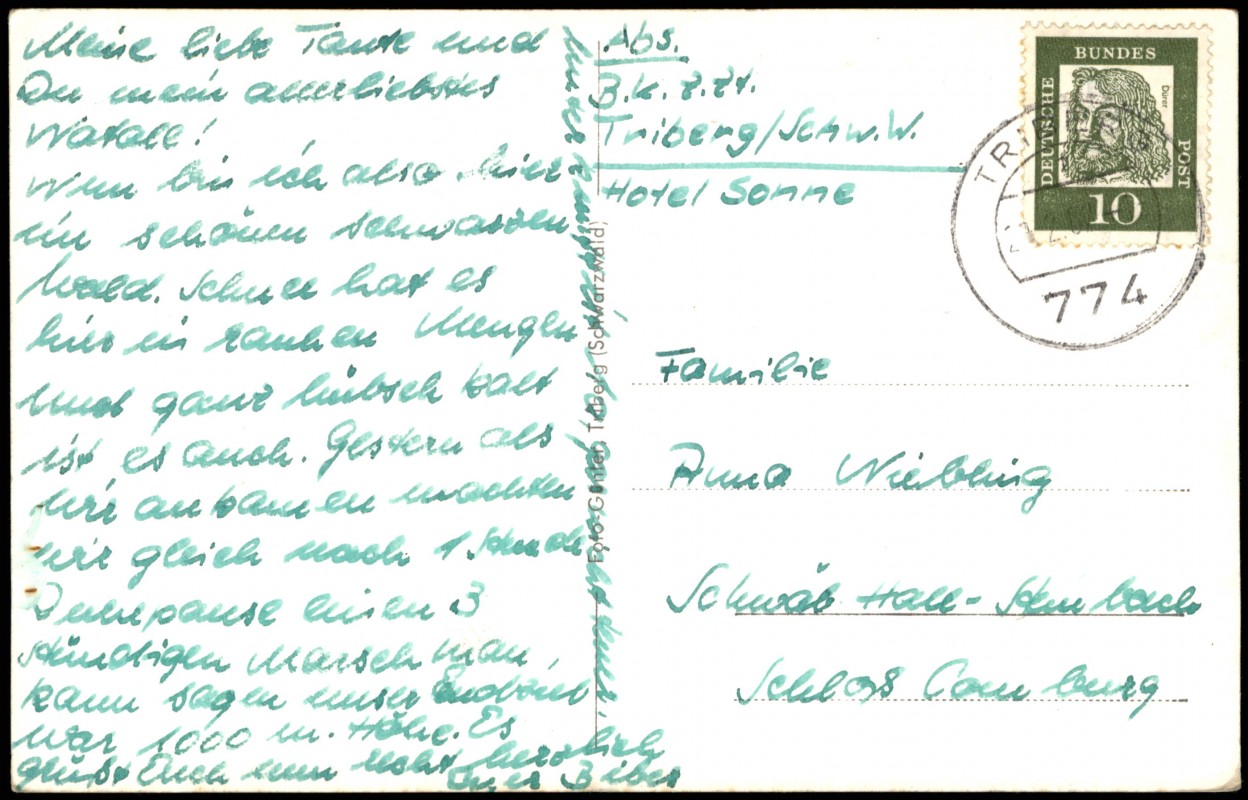 Meine liebe Tante und
Du mein allerliebstes
Watall!
Nun bin ich also hier
im schönen schwarzen
Wald. Schnee hat es
hier in rauhen Mengen
und ganz hübsch kalt
ist es auch. Gestern als
wir ankamen machten
wir gleich nach 1 Stunde
Ruhepause einen 3
stündigen Marsch man
kann sagen unser
war 1000 m. Höhe. Es
grüßt Euch nun recht herzlich
Eures Biber
Abs.
B.K. z.Zt.
Triberg/Schw.W.
Hotel Sonne
Foto-Günter, Triberg (Schwarzwald)
DEUTSCHE
BUNDES
POST
Dürer
10
TRIBERG
774
Familie
Anna Niebling
Schwäb Hall-Steinbach
Schloss Comburg